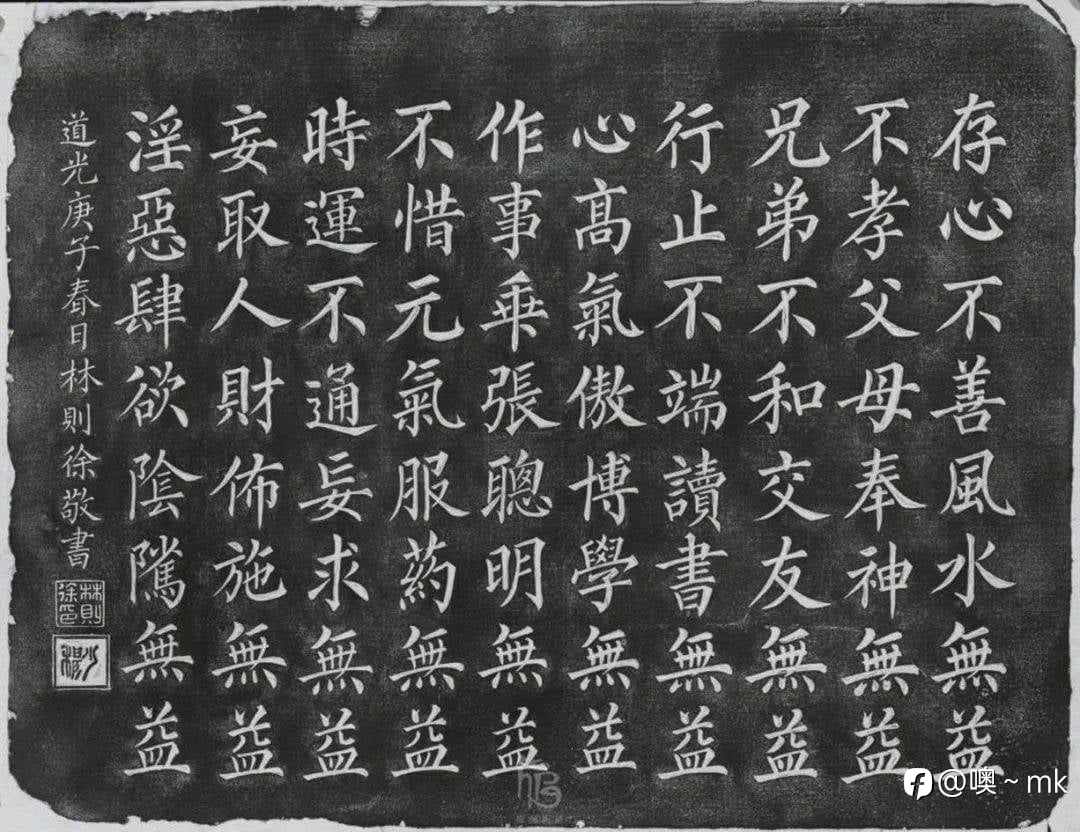 存心不善風水無益
不孝父母奉神無益
兄弟不和交友無益
行止不端讀書無益
心高氣傲博學無益
作事乖張聰明無益
不惜元氣服药無益
時運不通妄求無益
妄取人財佈施無益
淫惡肆欲陰隲無益
道光庚子春日林則徐敬書
林則徐印
少穆
@噢~mk